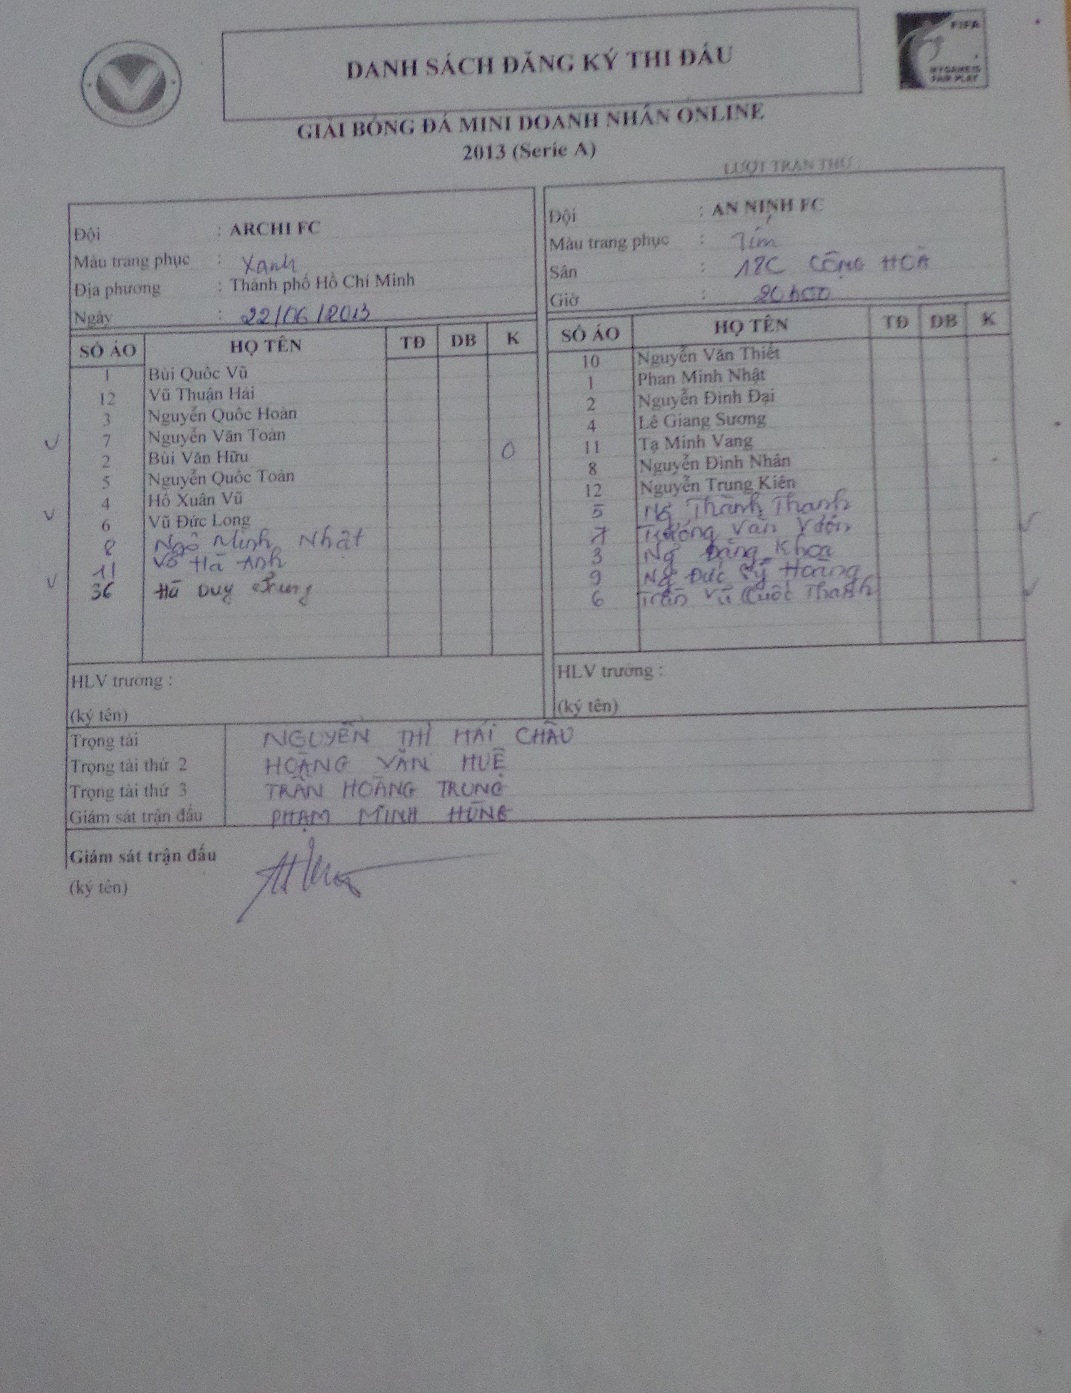 DANH SÁCH ĐĂNG KÝ THI ĐẤU
FIFA
MY GAME IS
FAIR PLAY
GIẢI BÓNG ĐÁ MINI DOANH NHÂN ONLINE
2013 (Serie A)
LƯỢT TRẬN THỨ :
Đội : ARCHI FC
Màu trang phục : Xanh
Địa phương : Thành phố Hồ Chí Minh
Ngày : 22/06/2013
Đội : AN NINH FC
Màu trang phục : Tím
Sân : 18C CỘNG HOÀ
Giờ : 20h00
SỐ ÁO HỌ TÊN TĐ DB K
1 Bùi Quốc Vũ
12 Vũ Thuận Hải
3 Nguyễn Quốc Hoàn
7 Nguyễn Văn Toàn
2 Bùi Văn Hữu O
5 Nguyễn Quốc Toàn
4 Hồ Xuân Vũ
6 Vũ Đức Long
8 Ngô Minh Nhật
11 Võ Hà Anh
36 Hà Duy Trung
SỐ ÁO HỌ TÊN TĐ DB K
10 Nguyễn Văn Thiết
1 Phan Minh Nhật
2 Nguyễn Đình Đại
4 Lê Giang Sương
11 Tạ Minh Vang
8 Nguyễn Đình Nhân
12 Nguyễn Trung Kiên
5 Ng Thành Thanh
7 Trương Văn
3 Ng Đăng Khoa
9 Ng Đức Sỹ Hoàng
6 Trần Vũ Quốc Thanh
HLV trưởng :
(ký tên)
HLV trưởng :
(ký tên)
Trọng tài NGUYỄN THỊ HẢI CHÂU
Trọng tài thứ 2 HOÀNG VĂN HUỆ
Trọng tài thứ 3 TRẦN HOÀNG TRUNG
Giám sát trận đấu PHẠM MINH HÙNG
Giám sát trận đấu
(ký tên)